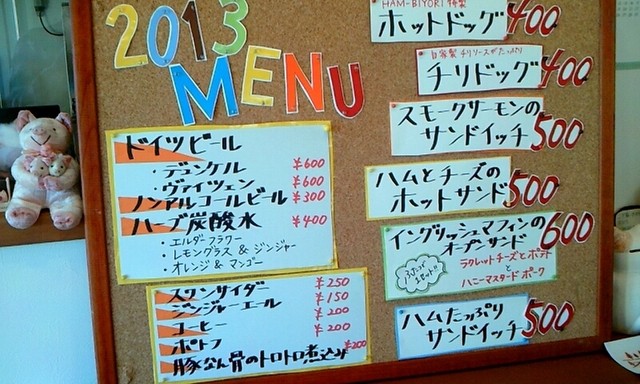 2013
MENU
ドイツビール
・デュンケル ¥600
・ヴァイツェン ¥600
ノンアルコールビール ¥300
ハーブ炭酸水 ¥400
・エルダーフラワー
・レモングラス & ジンジャー
・オレンジ & マンゴー
スワンサイダー ¥250
ジンジャーエール ¥150
コーヒー ¥200
ポトフ ¥200
豚なん骨のトロトロ煮込み ¥200
HAM-BIYORI 特製
ホットドッグ 400
自家製チリソースがたっぷり
チリドッグ 400
スモークサーモンの
サンドイッチ 500
ハムとチーズの
ホットサンド 500
イングリッシュマフィンの
オープンサンド 600
ラクレットチーズとポテト
と
ハニーマスタードポーク
ハムたっぷり
サンドイッチ 500